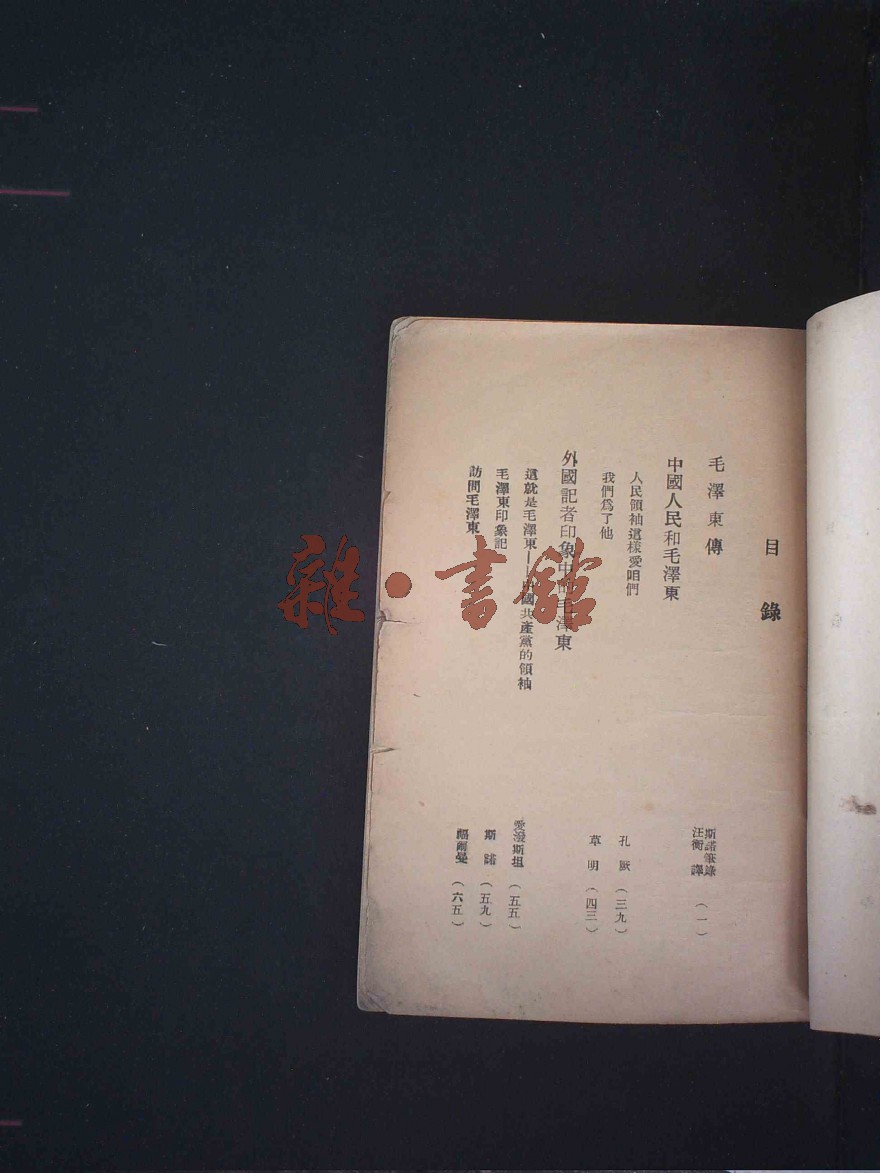 目錄
毛澤東傳 斯諾筆錄 汪衡譯 (一)
中國人民和毛澤東
人民領袖這樣愛咱們 孔厥 (三九)
我們爲了他 草明 (四三)
外國記者印象中的毛澤東
這就是毛澤東——中國共產黨的領袖 愛潑斯坦 (五五)
毛澤東印象記 斯諾 (五九)
訪問毛澤東 福爾曼 (六五)
雜·書館